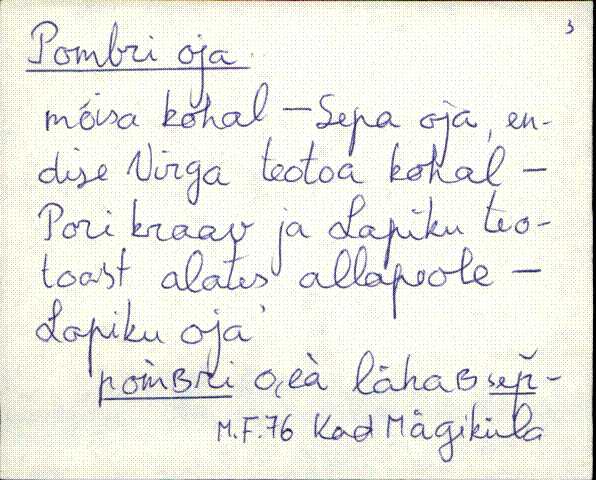 3
Pombri oja
mõisa kohal – Sepa oja, en-
dise Virga teotoa kohal –
Pori kraav ja Lapiku teo-
toast alates allapoole –
Lapiku oja
po͔m̀ʙri o̬i̯à lähäʙ sep̆-
M.F.76 Kad Mägiküla